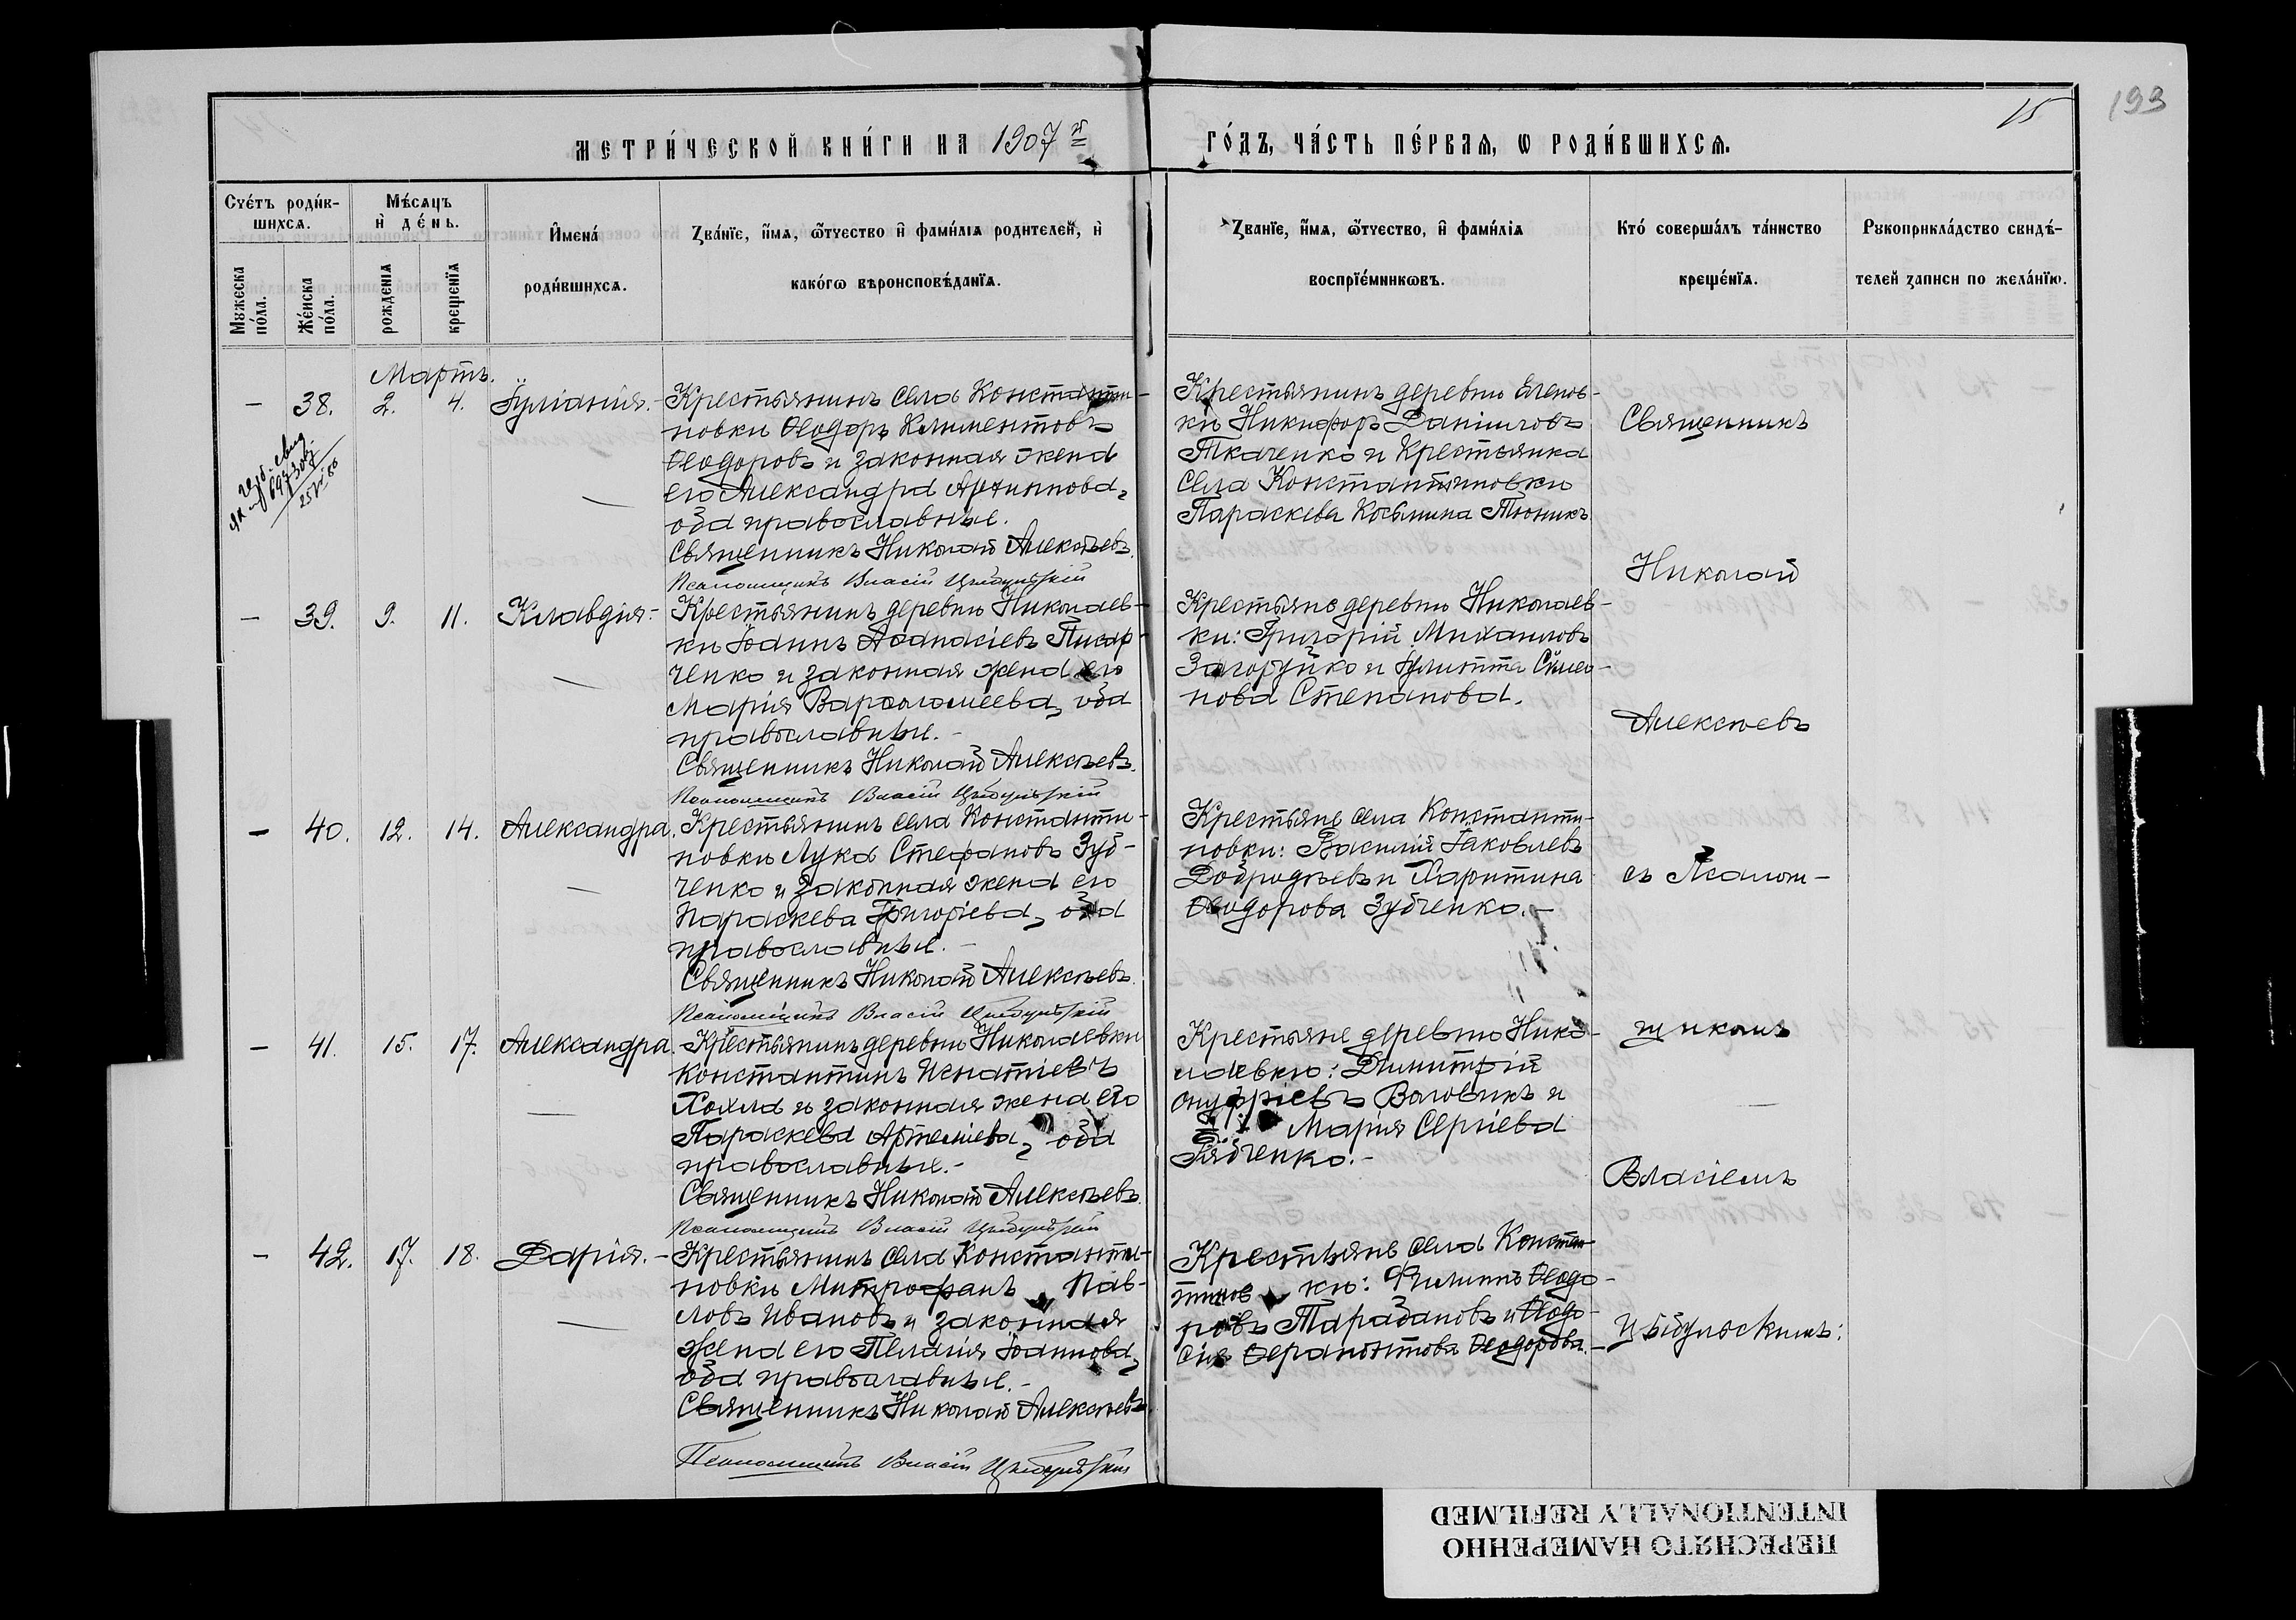 193
15
МЕТРИ́ЧЕСКОЙ КНИ́ГИ НА 1907й
ГО́ДЪ, ЧА́СТЬ ПЕ́РВАѦ, Ѡ РОДИ́ВШИХСѦ.
Сче́тъ роди́в-
шихсѧ.
Мужеска по́ла.
Же́нска по́ла.
Мѣ́сѧцъ
и҆ де́нь.
рожденїѧ
крещенїѧ
И҆мена́
роди́вшихсѧ.
Зва́нїе, и҆́мѧ, ѻ҆́тчество и҆ фами́лїѧ родителей, и҆
како́гѡ вѣроисповѣ́данїѧ.
Званїе, и҆́мѧ, ѻ҆́тчество, и҆ фами́лїѧ
воспрїе́мникѡвъ.
Кто́ соверша́лъ та́инство
креще́нїѧ.
Рукоприкла́дство свидѣ́-
телей записи по жела́нїю.
Мартъ.
— 38. 2. 4. Іуліанія. —
Крестьянинъ села Константи-
новки Ѳеодоръ Климентовъ
Ѳеодоровъ и законная жена
его Александра
оба православные.
Священникъ Николай Алексѣевъ.
Псаломщикъ Власій Цыбульскій
Крестьянинъ деревни Еленов-
ки Никифоръ Даніиловъ
Ткаченко и Крестьянка
села Константиновки
Параскева Косьмина Тюникъ
— 39. 9. 11. Клавдія. —
Крестьянинъ деревни Николаев-
ки Іоаннъ Аѳанасіевъ Писар-
ченко и законная жена его
Марія Варѳоломеева, оба
православные. —
Священникъ Николай Алексѣевъ.
Псаломщикъ Власій Цыбульскій
Крестьяне деревни Николаев-
ки: Григорій Михаиловъ
Загоруйко и Іулитта Симео-
нова Степанова.
— 40. 12. 14. Александра.
Крестьянинъ села Константи-
новки Лука Стефановъ Зуб-
ченко и законная жена его
Параскева Григоріева, оба
православные. —
Священникъ Николай Алексѣевъ.
Псаломщикъ Власій Цыбульскій
Крестьяне села Константи-
новки: Василій Іаковлевъ
Добродѣевъ и Харитина
Ѳеодорова Зубченко. —
— 41. 15. 17. Александра.
Крестьянинъ деревни Николаевки
Константинъ Игнатіевъ
Хохла и законная жена его
Параскева Артеміева, оба
православные. —
Священникъ Николай Алексѣевъ.
Псаломщикъ Власій Цыбульскій
Крестьяне деревни Нико-
лаевки: Димитрій
Онуфріевъ Воловикъ и
Марія Сергіева
Рябченко. —
— 42. 17. 18. Дарія. —
Крестьянинъ села Константи-
новки Митрофанъ Пав-
ловъ Ивановъ и законная
жена его Пелагія Іоаннова,
оба православные. —
Священникъ Николай Алексѣевъ
Псаломщикъ Власій Цыбульскій
Крестьяне села Констан-
тинов ки: Филиппъ Ѳеодо-
ровъ Тарабановъ и Ѳеодо-
сія Ѳерапонтова Ѳеодорова. —
Священникъ
Николай
Алексѣевъ
съ Псалом-
щикомъ
Власіемъ
Цыбульскимъ:
ПЕРЕСНЯТО НАМЕРЕННО
INTENTIONALLY REFILMED